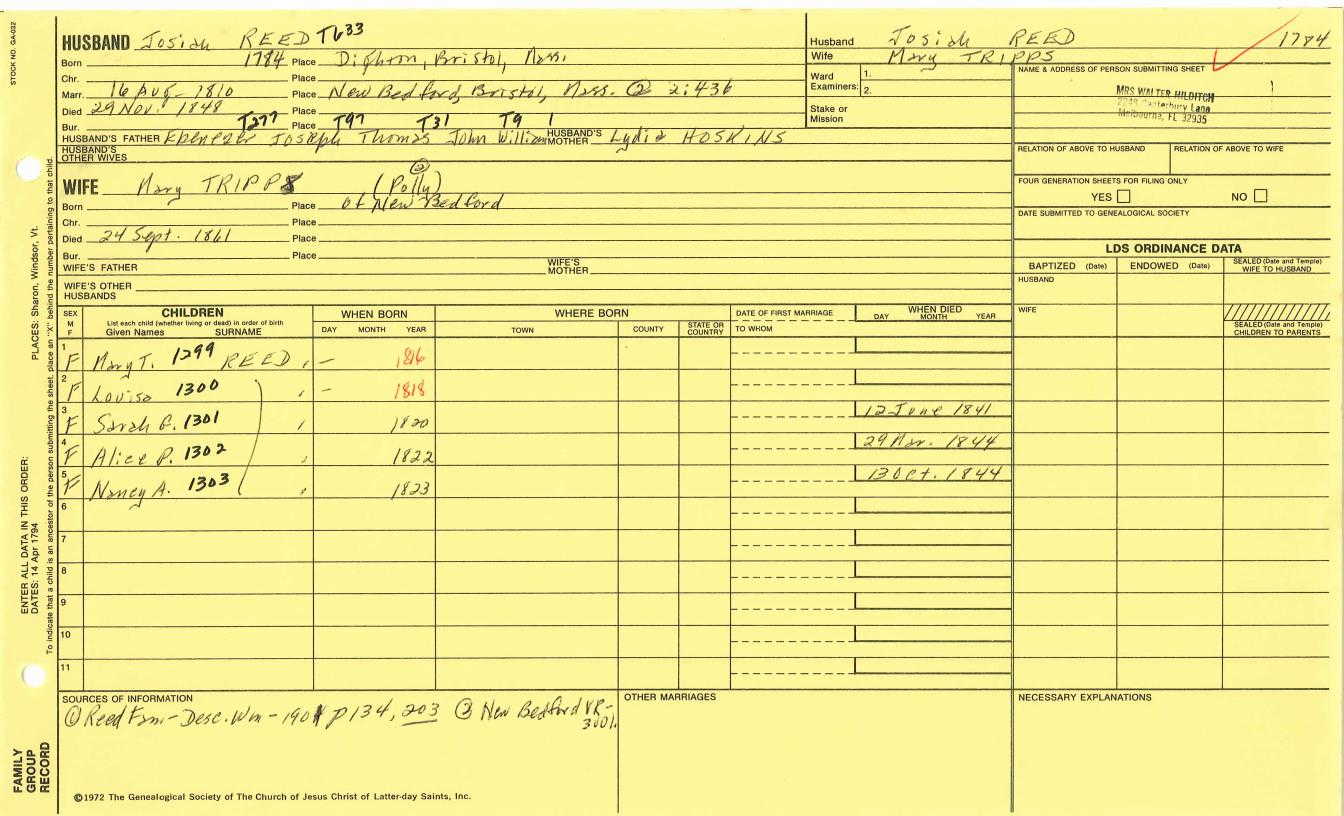 STOCK NO. GA-032
HUSBAND Josiah REED T633
Born 1784 Place Dighton, Bristol, Mass.
Chr. Place
Marr. 16 Aug 1810 Place New Bedford, Bristol, Mass. ② 2:436
Died 29 Nov. 1848 Place
Bur. T277 Place T97 T31 T9 1
HUSBAND'S FATHER Ebenezer Joseph Thomas John William HUSBAND'S MOTHER Lydia HOSKINS
HUSBAND'S OTHER WIVES
②
WIFE Mary TRIPPS (Polly)
Born Place of New Bedford
Chr. Place
Died 24 Sept. 1861 Place
Bur. Place
WIFE'S FATHER WIFE'S MOTHER
WIFE'S OTHER HUSBANDS
Husband Josiah REED 1784
Wife Mary TRIPPS
Ward Examiners: 1.
2.
Stake or Mission
NAME & ADDRESS OF PERSON SUBMITTING SHEET
MRS WALTER HILDITCH
2248 Canterbury Lane
Melbourne, FL 32935
RELATION OF ABOVE TO HUSBAND RELATION OF ABOVE TO WIFE
FOUR GENERATION SHEETS FOR FILING ONLY
YES NO
DATE SUBMITTED TO GENEALOGICAL SOCIETY
LDS ORDINANCE DATA
BAPTIZED (Date) ENDOWED (Date) SEALED (Date and Temple) WIFE TO HUSBAND
HUSBAND
WIFE
SEALED (Date and Temple) CHILDREN TO PARENTS
SEX M F CHILDREN WHEN BORN WHERE BORN DATE OF FIRST MARRIAGE WHEN DIED
List each child (whether living or dead) in order of birth
Given Names SURNAME DAY MONTH YEAR TOWN COUNTY STATE OR COUNTRY TO WHOM DAY MONTH YEAR
1 F Mary T. 1299 REED - 1816
2 F Louisa 1300 - 1818
3 F Sarah E. 1301 1820 12 June 1841
4 F Alice P. 1302 1822 29 Mar. 1844
5 F Nancy A. 1303 1823 13 Oct. 1844
6
7
8
9
10
11
SOURCES OF INFORMATION
① Reed Fam - Desc. Wm - 1901 p 134, 203 ② New Bedford VR-
OTHER MARRIAGES
NECESSARY EXPLANATIONS
©1972 The Genealogical Society of The Church of Jesus Christ of Latter-day Saints, Inc.
PLACES: Sharon, Windsor, Vt.
To indicate that a child is an ancestor of the person submitting the sheet, place an "X" behind the number pertaining to that child.
ENTER ALL DATA IN THIS ORDER:
DATES: 14 Apr 1794
FAMILY
GROUP
RECORD